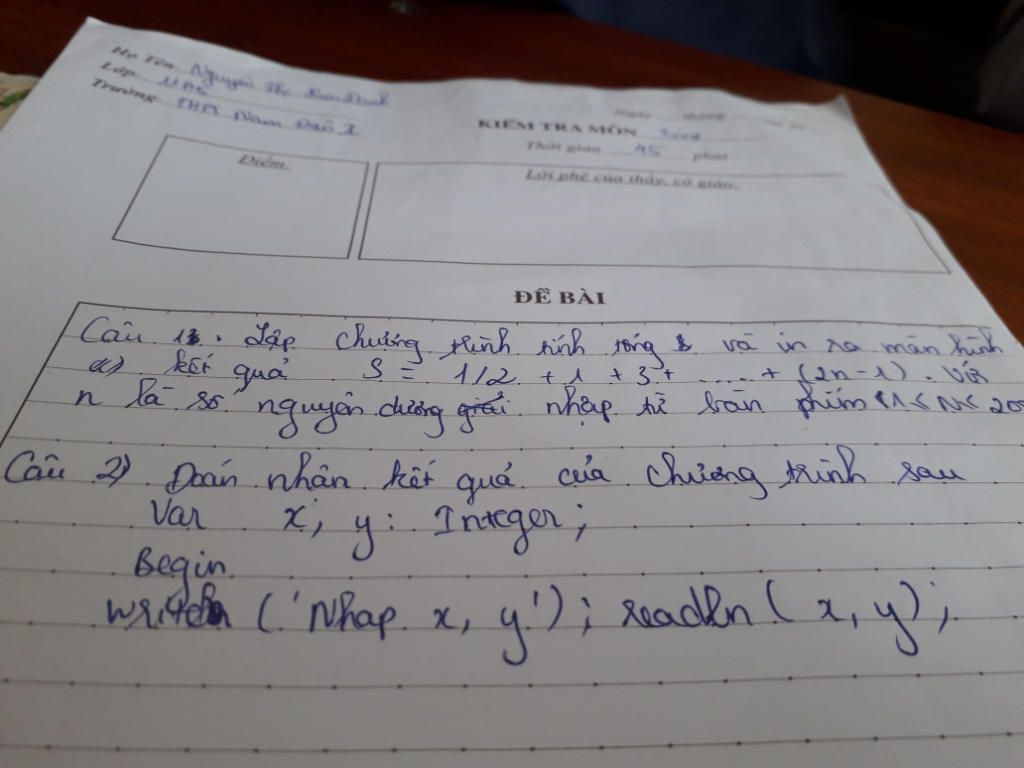 Họ Tên: Nguyễn Thị
Lớp:
Trường: THPT Nam Đàn I
Ngày tháng
KIỂM TRA MÔN
Thời gian 45 phút
Điểm:
Lời phê của thầy, cô giáo.
ĐỀ BÀI
Câu 1. Lập chương trình tính tổng và in ra màn hình
a) kết quả S = 1/2 + 1 + 3 + ..... + (2n-1). Với
n là số nguyên dương nhập từ bàn phím
Câu 2) Đoán nhận kết quả của chương trình sau
Var x, y: Integer;
Begin
writeln ('Nhap x, y'); readln ( x, y);